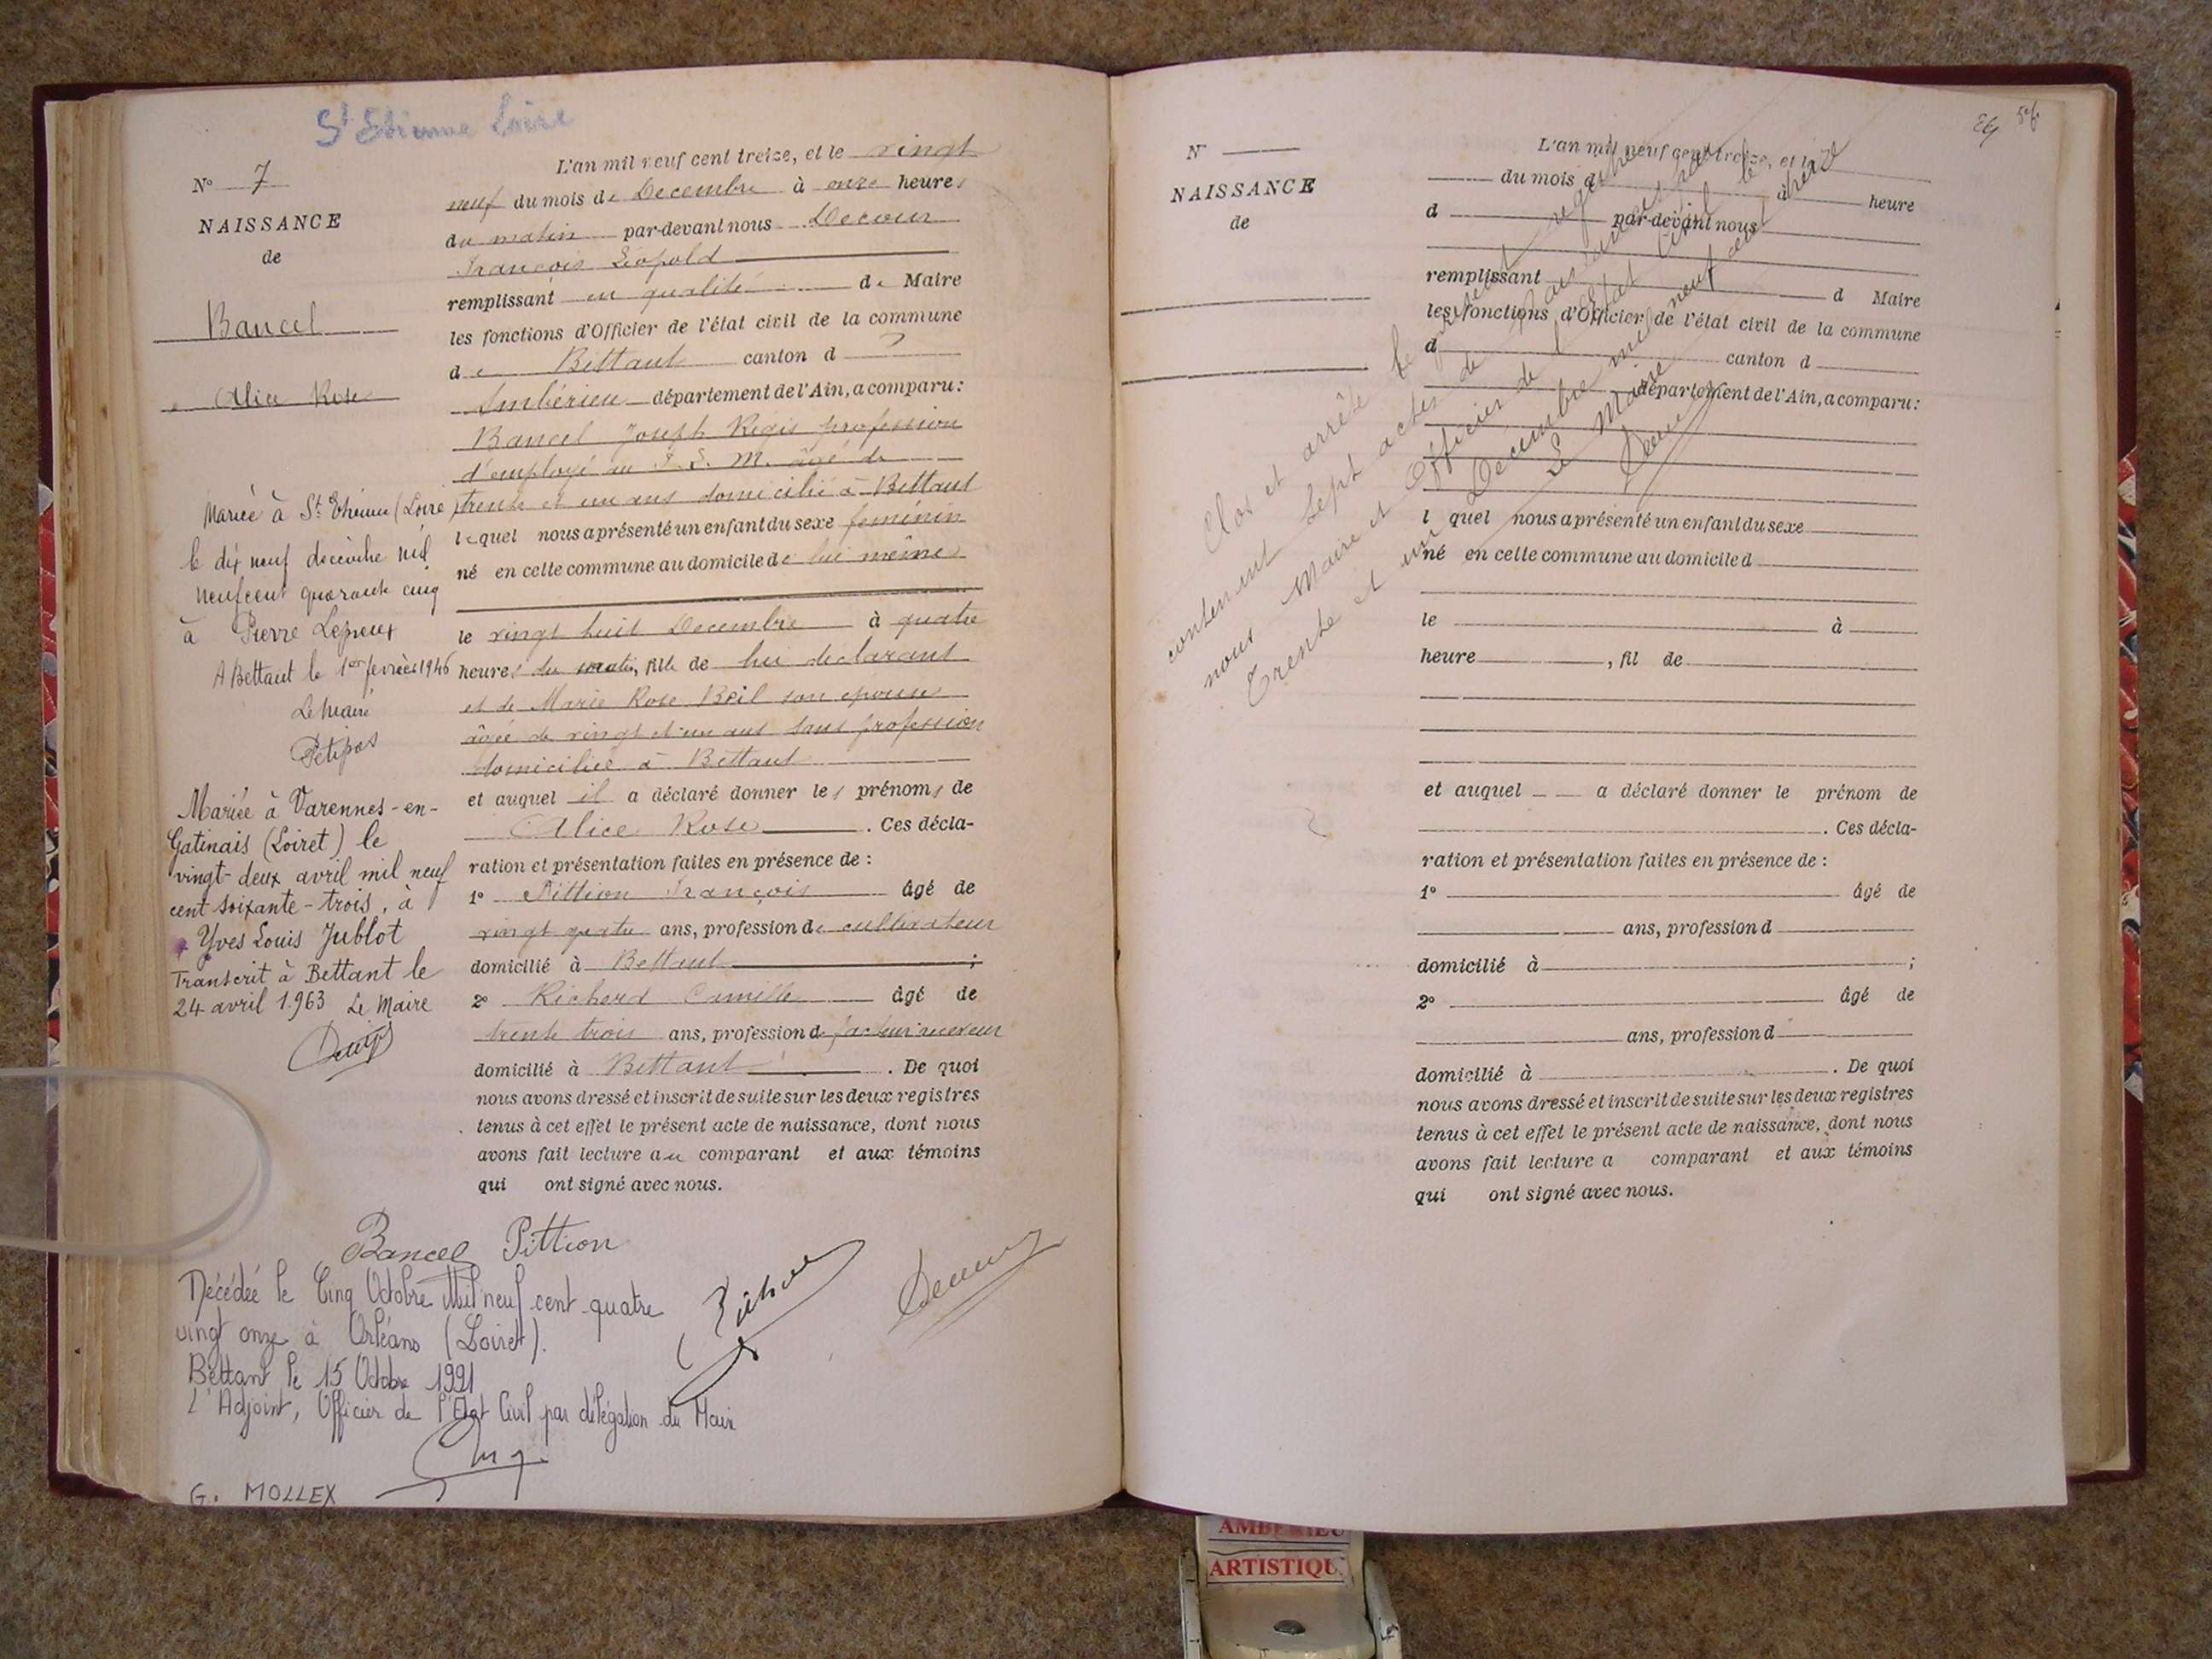 St Etienne Loire
N° 7
NAISSANCE
de
Bancel
Alice Rose
L'an mil neuf cent treize, et le vingt
neuf du mois de Decembre à onze heures
du matin par-devant nous Decour
François Léopold
remplissant en qualité de Maire
les fonctions d'Officier de l'état civil de la commune
de Bettant canton d
Ambérieu département de l'Ain, a comparu:
Bancel Joseph Régis profession
d'employé au P. L. M. âgé de
trente et un ans domicilié à Bettant
lequel nous a présenté un enfant du sexe feminin
né en cette commune au domicile de lui même
le vingt huit Decembre à quatre
heures du matin, fille de lui declarant
et de Marie Rose Boil son epouse
âgée de vingt et un ans sans profession
domiciliée à Bettant
et auquel il a déclaré donner les prénoms de
Alice Rose. Ces décla-
ration et présentation faites en présence de :
1° Pittion François âgé de
vingt quatre ans, profession de cultivateur
domicilié à Bettant ;
2° Richerd Camille âgé de
trente trois ans, profession de facteur receveur
domicilié à Bettant. De quoi
nous avons dressé et inscrit de suite sur les deux registres
tenus à cet effet le présent acte de naissance, dont nous
avons fait lecture au comparant et aux témoins
qui ont signé avec nous.
Mariée à St. Etienne (Loire)
le dix neuf décembre mil
neuf cent quarante cinq
à Pierre Lepreux
A Bettant le 1er fevrier 1946
Le Maire
Petipas
Mariée à Varennes-en-
Gatinais (Loiret) le
vingt-deux avril mil neuf
cent soixante-trois, à
Yves Louis Jublot
Transcrit à Bettant le
24 avril 1.963 Le Maire
Bancel Pittion
Décédée le Cinq Octobre Mil neuf cent quatre
vingt onze à Orléans (Loiret).
Bettant le 15 Octobre 1991
L'Adjoint, Officier de l'Etat Civil par délégation du Maire
G. MOLLEX
N°
NAISSANCE
de
L'an mil neuf cent treize, et le
du mois d à heure
d par-devant nous
remplissant d Maire
les fonctions d'Officier de l'état civil de la commune
d canton d
département de l'Ain, a comparu:
l quel nous a présenté un enfant du sexe
né en cette commune au domicile d
le à
heure , fil de
et auquel a déclaré donner le prénom de
. Ces décla-
ration et présentation faites en présence de :
1° âgé de
ans, profession d
domicilié à ;
2° âgé de
ans, profession d
domicilié à . De quoi
nous avons dressé et inscrit de suite sur les deux registres
tenus à cet effet le présent acte de naissance, dont nous
avons fait lecture a comparant et aux témoins
qui ont signé avec nous.
Clos et arrêté le présent registre
contenant sept actes de naissances par
nous Maire et Officier de l'état civil le
Trente et un Decembre mil neuf cent treize
Le Maire
AMBERIEU
ARTISTIQU